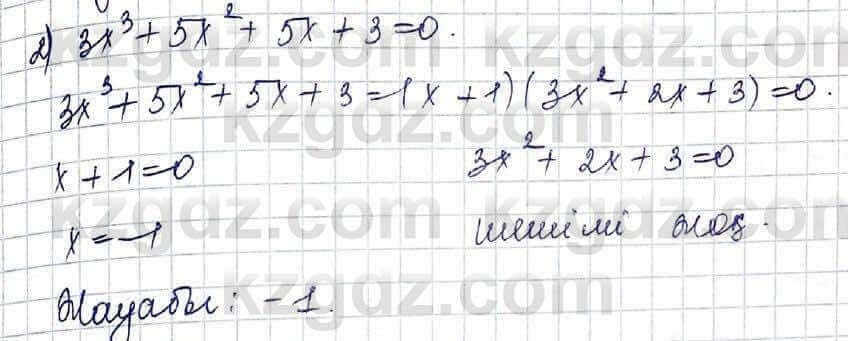 2) 3x³ + 5x² + 5x + 3 = 0.
3x³ + 5x² + 5x + 3 = (x + 1)(3x² + 2x + 3) = 0.
x + 1 = 0 3x² + 2x + 3 = 0
x = -1 шешімі жоқ.
Жауабы: -1.
kzgdz.com